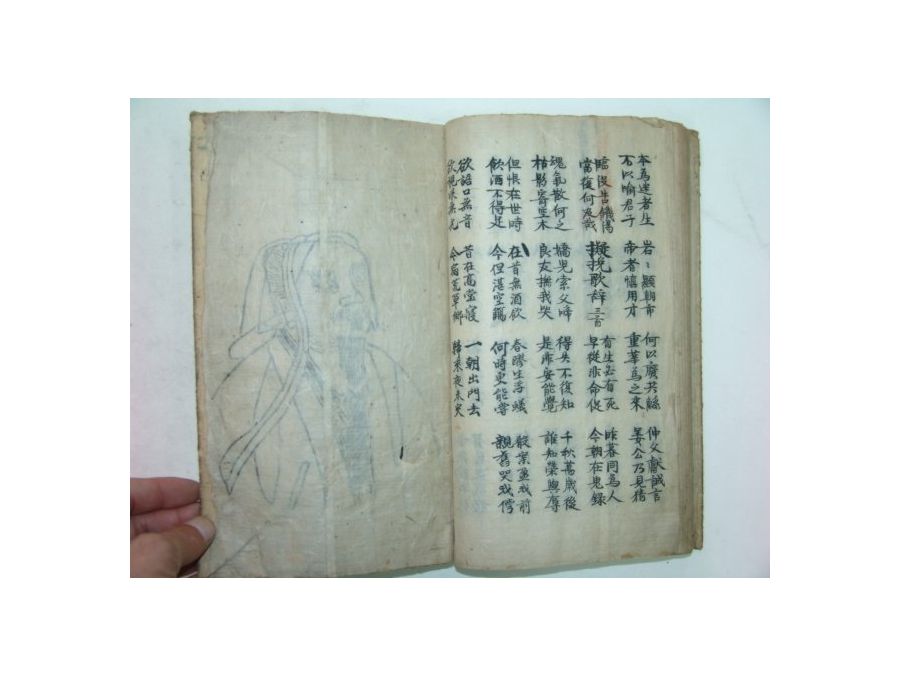 本為迷者生
不以喻君子
岩〻顯朝市
帝者慎用才
何以廢共鯀
重華為之來
仲父獻誠言
姜公乃見猜
臨沒告饑渴
當復何及哉
擬挽歌辭 三首
有生必有死
早從非命促
昨暮同為人
今朝在鬼錄
魂氣散何之
枯影寄空木
嬌兒索父啼
良友撫我哭
得失不復知
是非安能覺
千秋萬歲後
誰知榮與辱
但恨在世時
飲酒不得足
在昔無酒飲
今但湛空觴
春醪生浮蟻
何時更能嘗
殽案盈我前
親舊哭我傍
欲語口無音
欲視眼無光
昔在高堂寢
今宿荒草鄉
一朝出門去
歸來夜未央